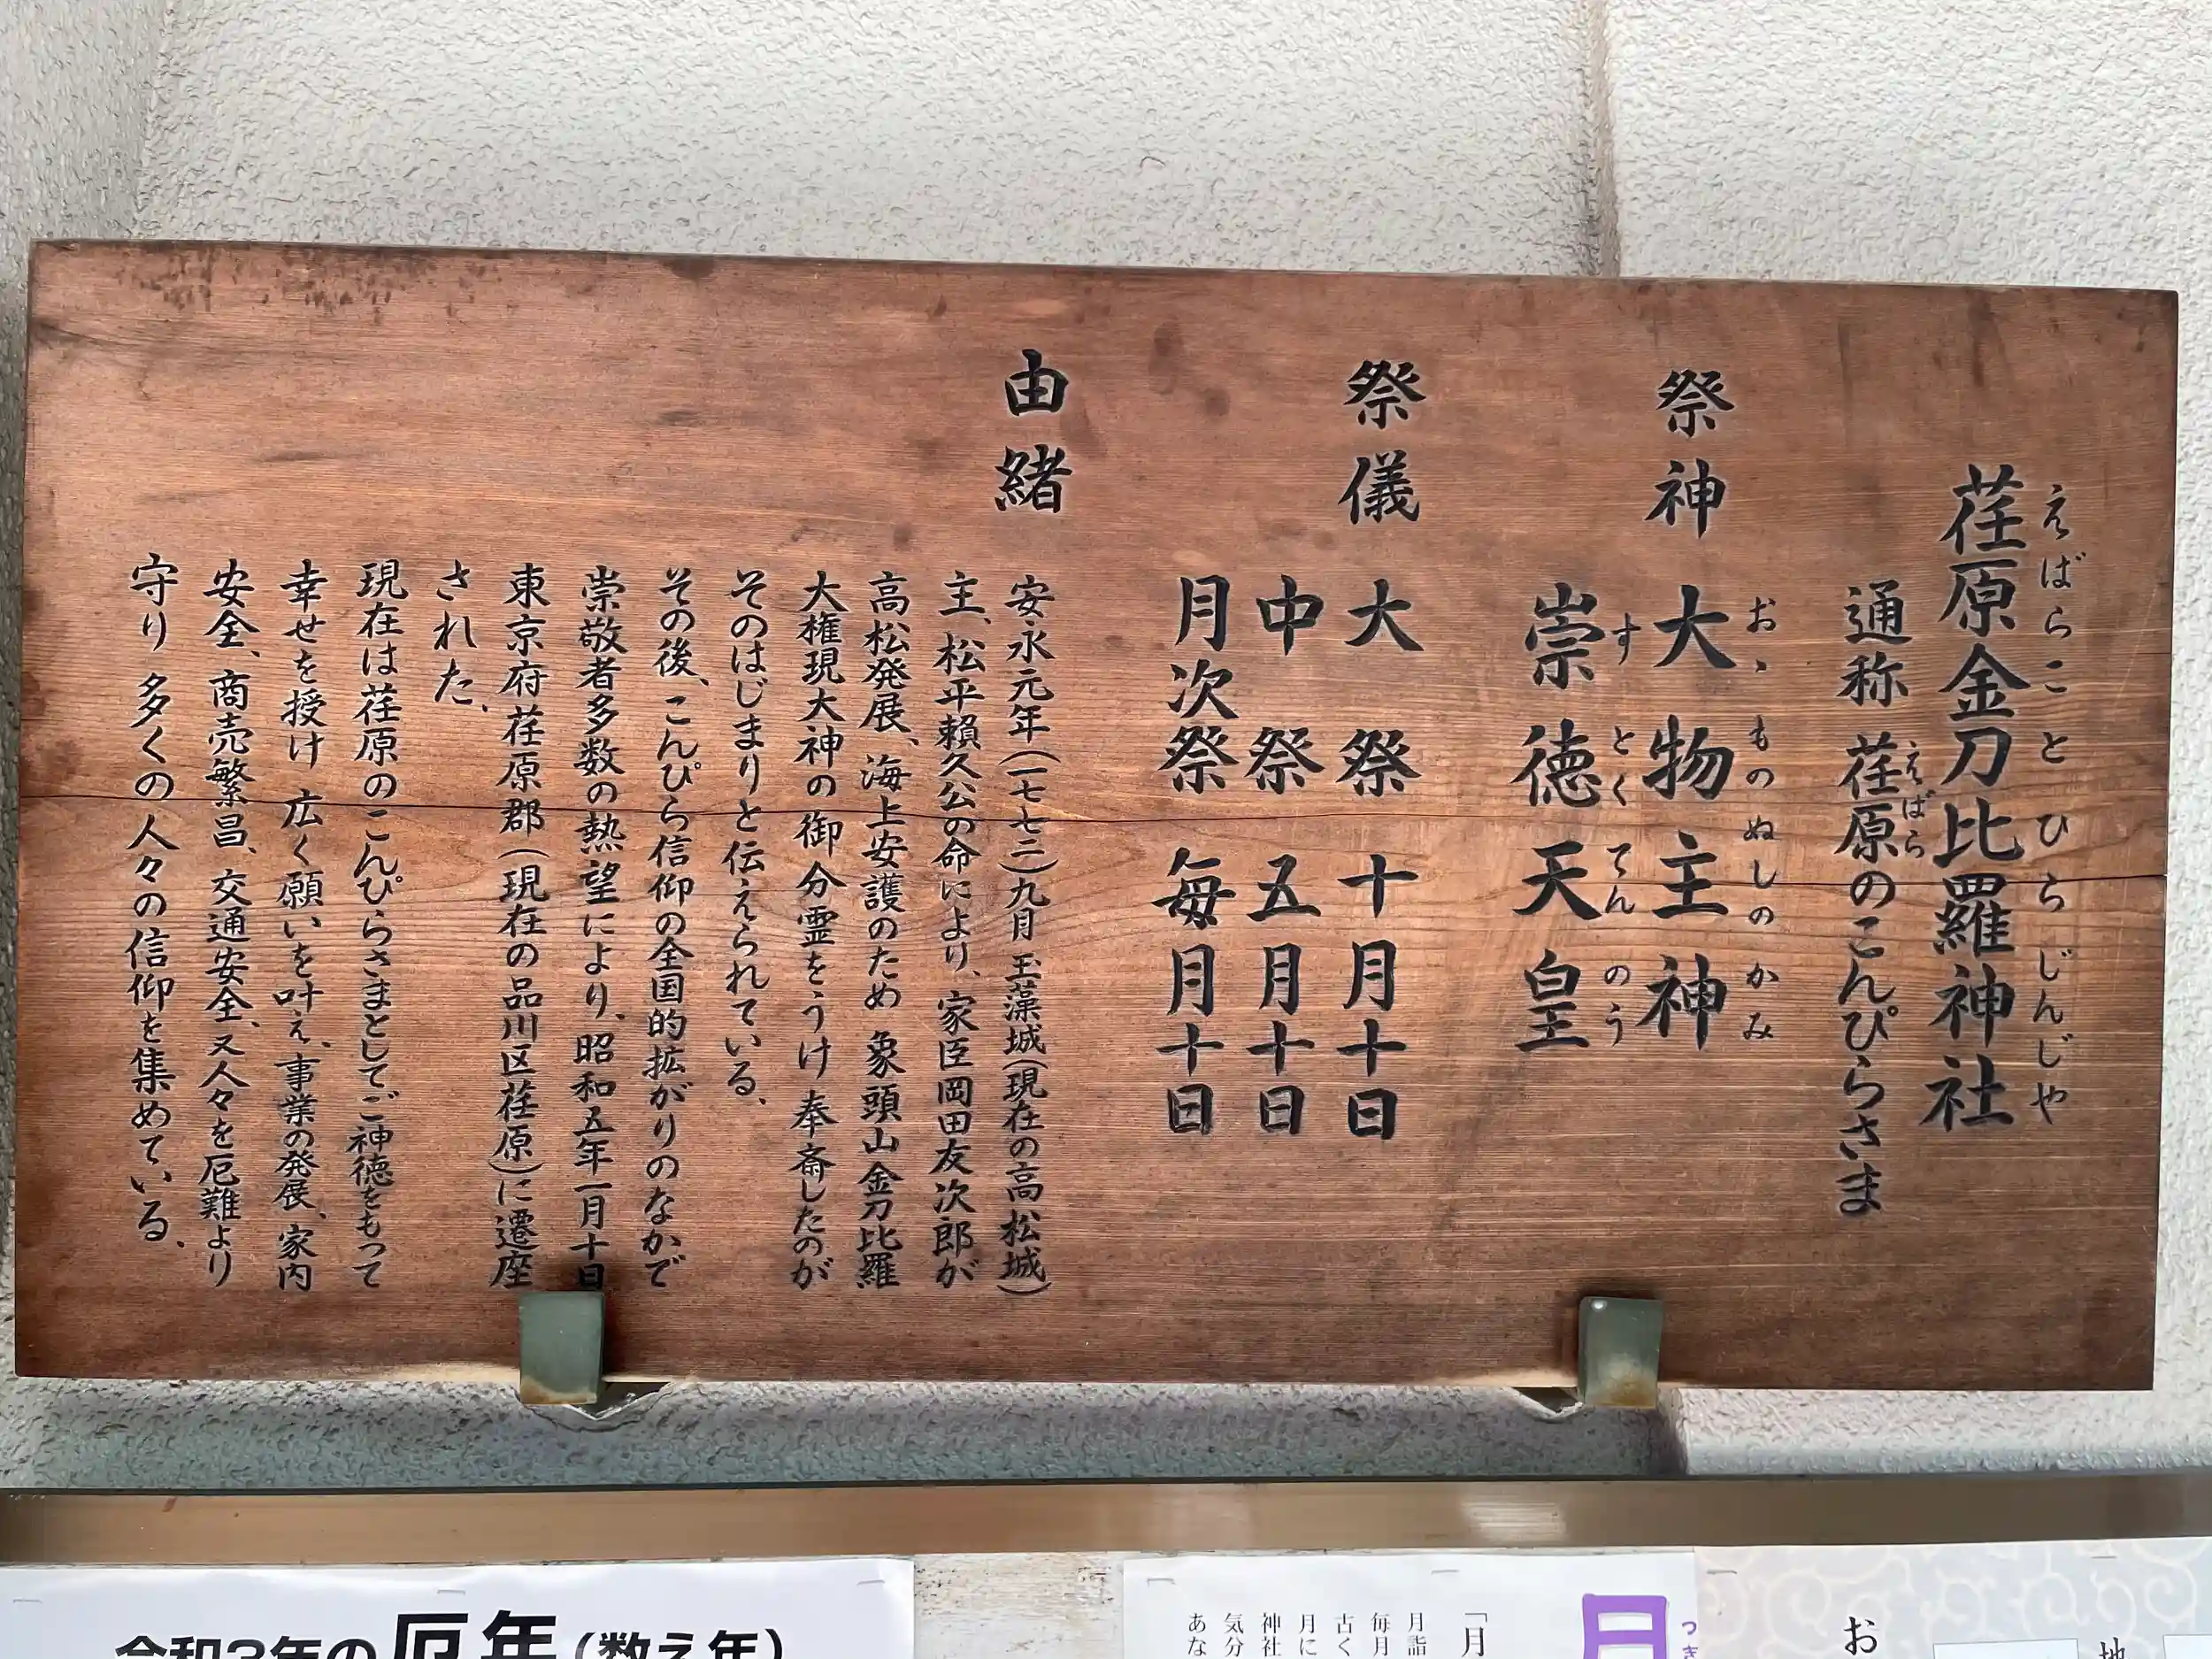 荏原金刀比羅神社
えばらことひらじんじや
通称 荏原のこんぴらさま
えばら
祭神 大物主神
おゝものぬしのかみ
崇徳天皇
すとくてんのう
祭儀 大祭 十月十日
中祭 五月十日
月次祭 毎月十日
由緒
安永元年(一七七二)九月 玉藻城(現在の高松城)
主、松平頼久公の命により、家臣岡田友次郎が
高松発展、海上安護のため 象頭山金刀比羅
大権現大神の御分霊をうけ奉斎したのが
そのはじまりと伝えられている。
その後、こんぴら信仰の全国的拡がりのなかで
崇敬者多数の熱望により、昭和五年一月十日
東京府荏原郡(現在の品川区荏原)に遷座
された。
現在は荏原のこんぴらさまとしてご神徳をもって
幸せを授け 広く願いを叶え、事業の発展、家内
安全、商売繁昌、交通安全、又人々を厄難より
守り 多くの人々の信仰を集めている。
令和3年の厄年(数え年)
つき
月
「月
月詣
毎月
古く
月に
神社
気分
あな
お
地